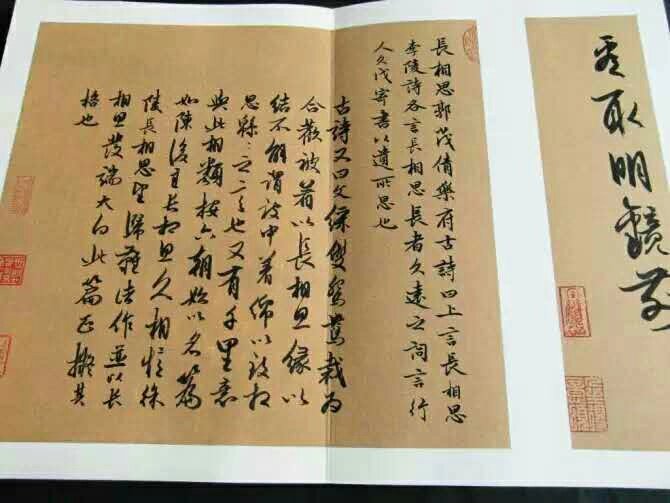 看取明鏡前
長相思郭茂倩樂府古詩曰上言長相思
李陵詩各言長相思長者久遠之詞言行
人久戍寄書以遺所思也
古詩又曰文綵雙鴛鴦裁為
合歡被著以長相思緣以
結不解謂被中著綿以致相
思緜緜之意也又有千里意
與此相類按六朝始以名篇
如陳後主長相思久相憶徐
陵長相思望歸難諸作並以長
相思發端太白此篇正擬其
格也